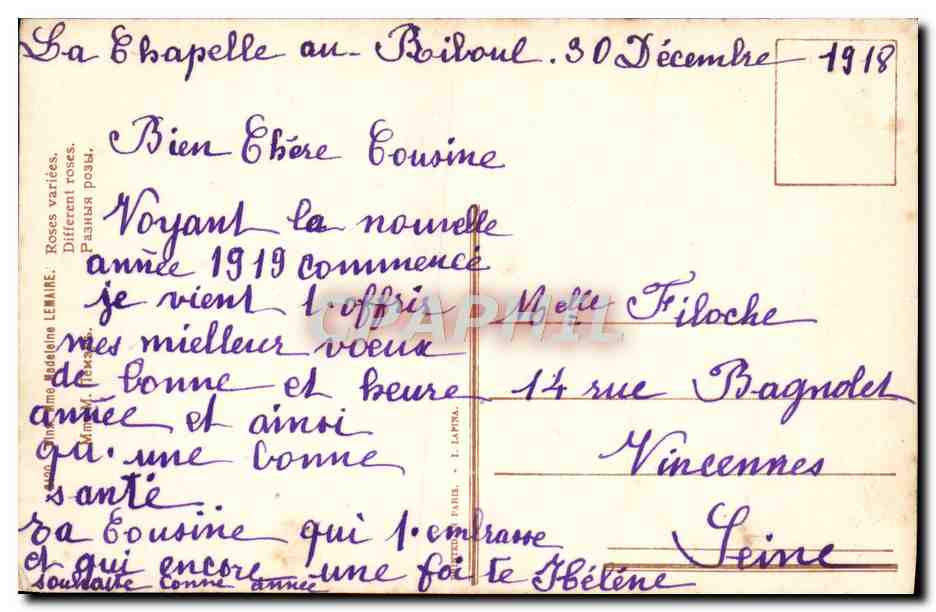 La Chapelle au-Riboul. 30 Décembre 1918
Bien Chère Cousine
Voyant la nouvelle
année 1919 commencé
je vient t.offrir
mes mielleur voeux
de bonne et heure
année et ainsi
qu.une bonne
santé
ta Cousine qui t.embrasse
et qui encore une foi te Hélène
souhaite bonne année
Melle Filoche
14 rue Bagnolet
Vincennes
Seine
Mme Madeleine LEMAIRE. Roses variées.
Different roses.
Разныя розы.
Mme M.
PARIS. - I. LAPINA.
CPAPHIL